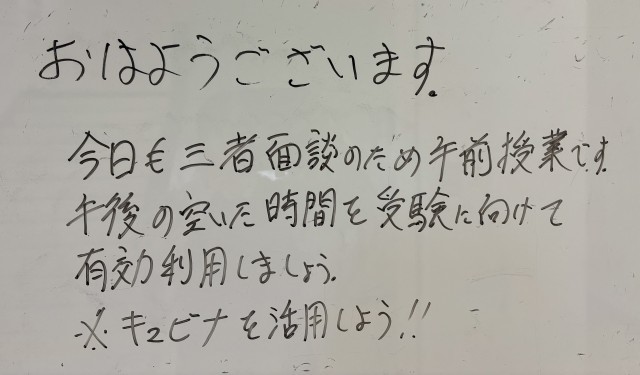 おはようございます.
今日も三者面談のため午前授業です
午後の空いた時間を受験に向けて
有効利用しましょう.
※キュビナを活用しよう!!